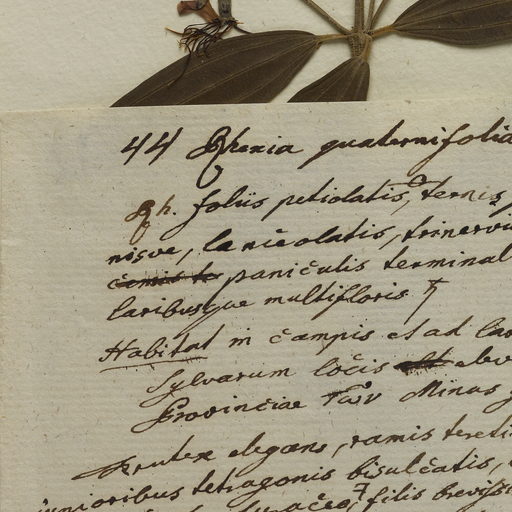 44 Rhexia quaternifolia
Rh. foliis petiolatis, ternis,
nisve, lanceolatis, trinervi
paniculis terminal
laribusque multifloris
Habitat in campis et ad
Sylvarum locis
Provinciae Minas
Frutex elegans, ramis tereti
junioribus tetragonis bisulcatis,
filis breviss